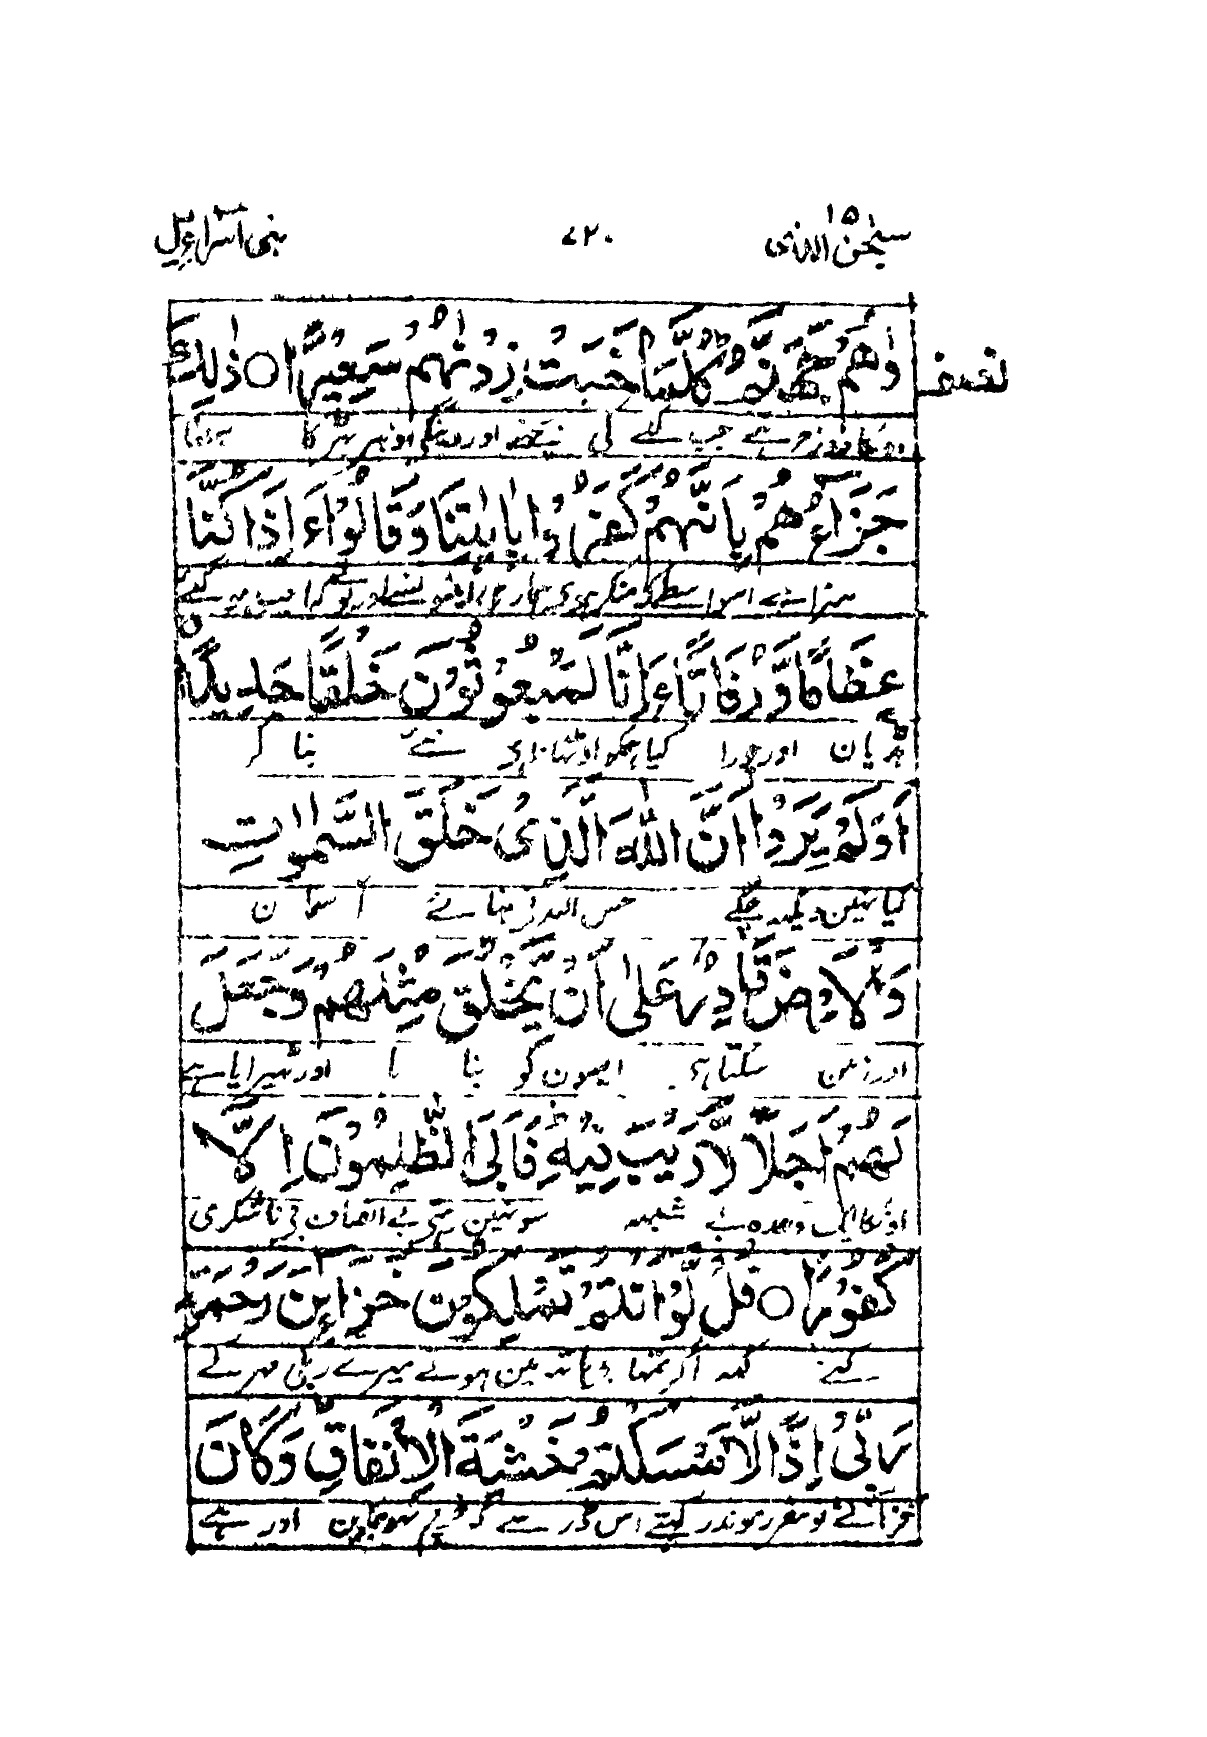 سبحن الذی ۱۵
۷۲۰
بنی اسراءیل
نصف
وٰهُمْ جَهَنَّمُ كُلَّمَا خَبَتْ زِدْنٰهُمْ سَعِيْرًا ○ ذٰلِكَ
دوزخ ہے جب لگے گی بجھنے اور دینگے اونپر بھڑکا
جَزَآؤُهُمْ بِاَنَّهُمْ كَفَرُوْا بِاٰيٰتِنَا وَقَالُوْٓا ءَاِذَا كُنَّا
سزا ہے اس واسطے کہ منکر ہوی ہماری آیتوں سے اور بولے کیا جب ہو گئے
عِظَامًا وَّرُفَاتًا ءَاِنَّا لَمَبْعُوْثُوْنَ خَلْقًا جَدِيْدًا ○
ہڈیان اور چورا کیا ہمکو اوٹھنا ہی نئے بنا کر
اَوَلَمْ يَرَوْا اَنَّ اللّٰهَ الَّذِىْ خَلَقَ السَّمٰوٰتِ
کیا نہین دیکھ چکے جس اللہ نے بنائے آسمان
وَالْاَرْضَ قَادِرٌ عَلٰٓى اَنْ يَّخْلُقَ مِثْلَهُمْ وَجَعَلَ
اور زمین سکتا ہی ایسون کو بنانا اور ٹھیرایا ہے
لَهُمْ اَجَلًا لَّا رَيْبَ فِيْهِ فَاَبَى الظّٰلِمُوْنَ اِلَّا
اونکا ایک وعدہ بے شبہہ سو نہین رہتی بے انصاف بن ناشکری
كُفُوْرًا ○ قُلْ لَّوْ اَنْتُمْ تَمْلِكُوْنَ خَزَآئِنَ رَحْمَةِ
کئے کہہ اگر تمہارے ہاتھ مین ہوتے میرے رب کی مہر کے
رَبِّىْٓ اِذًا لَّاَمْسَكْتُمْ خَشْيَةَ الْاِنْفَاقِ وَكَانَ
خزانے تو مقرر موندر کہتے اس ڈر سے کہ خرچ نہوجاوین اور ہے